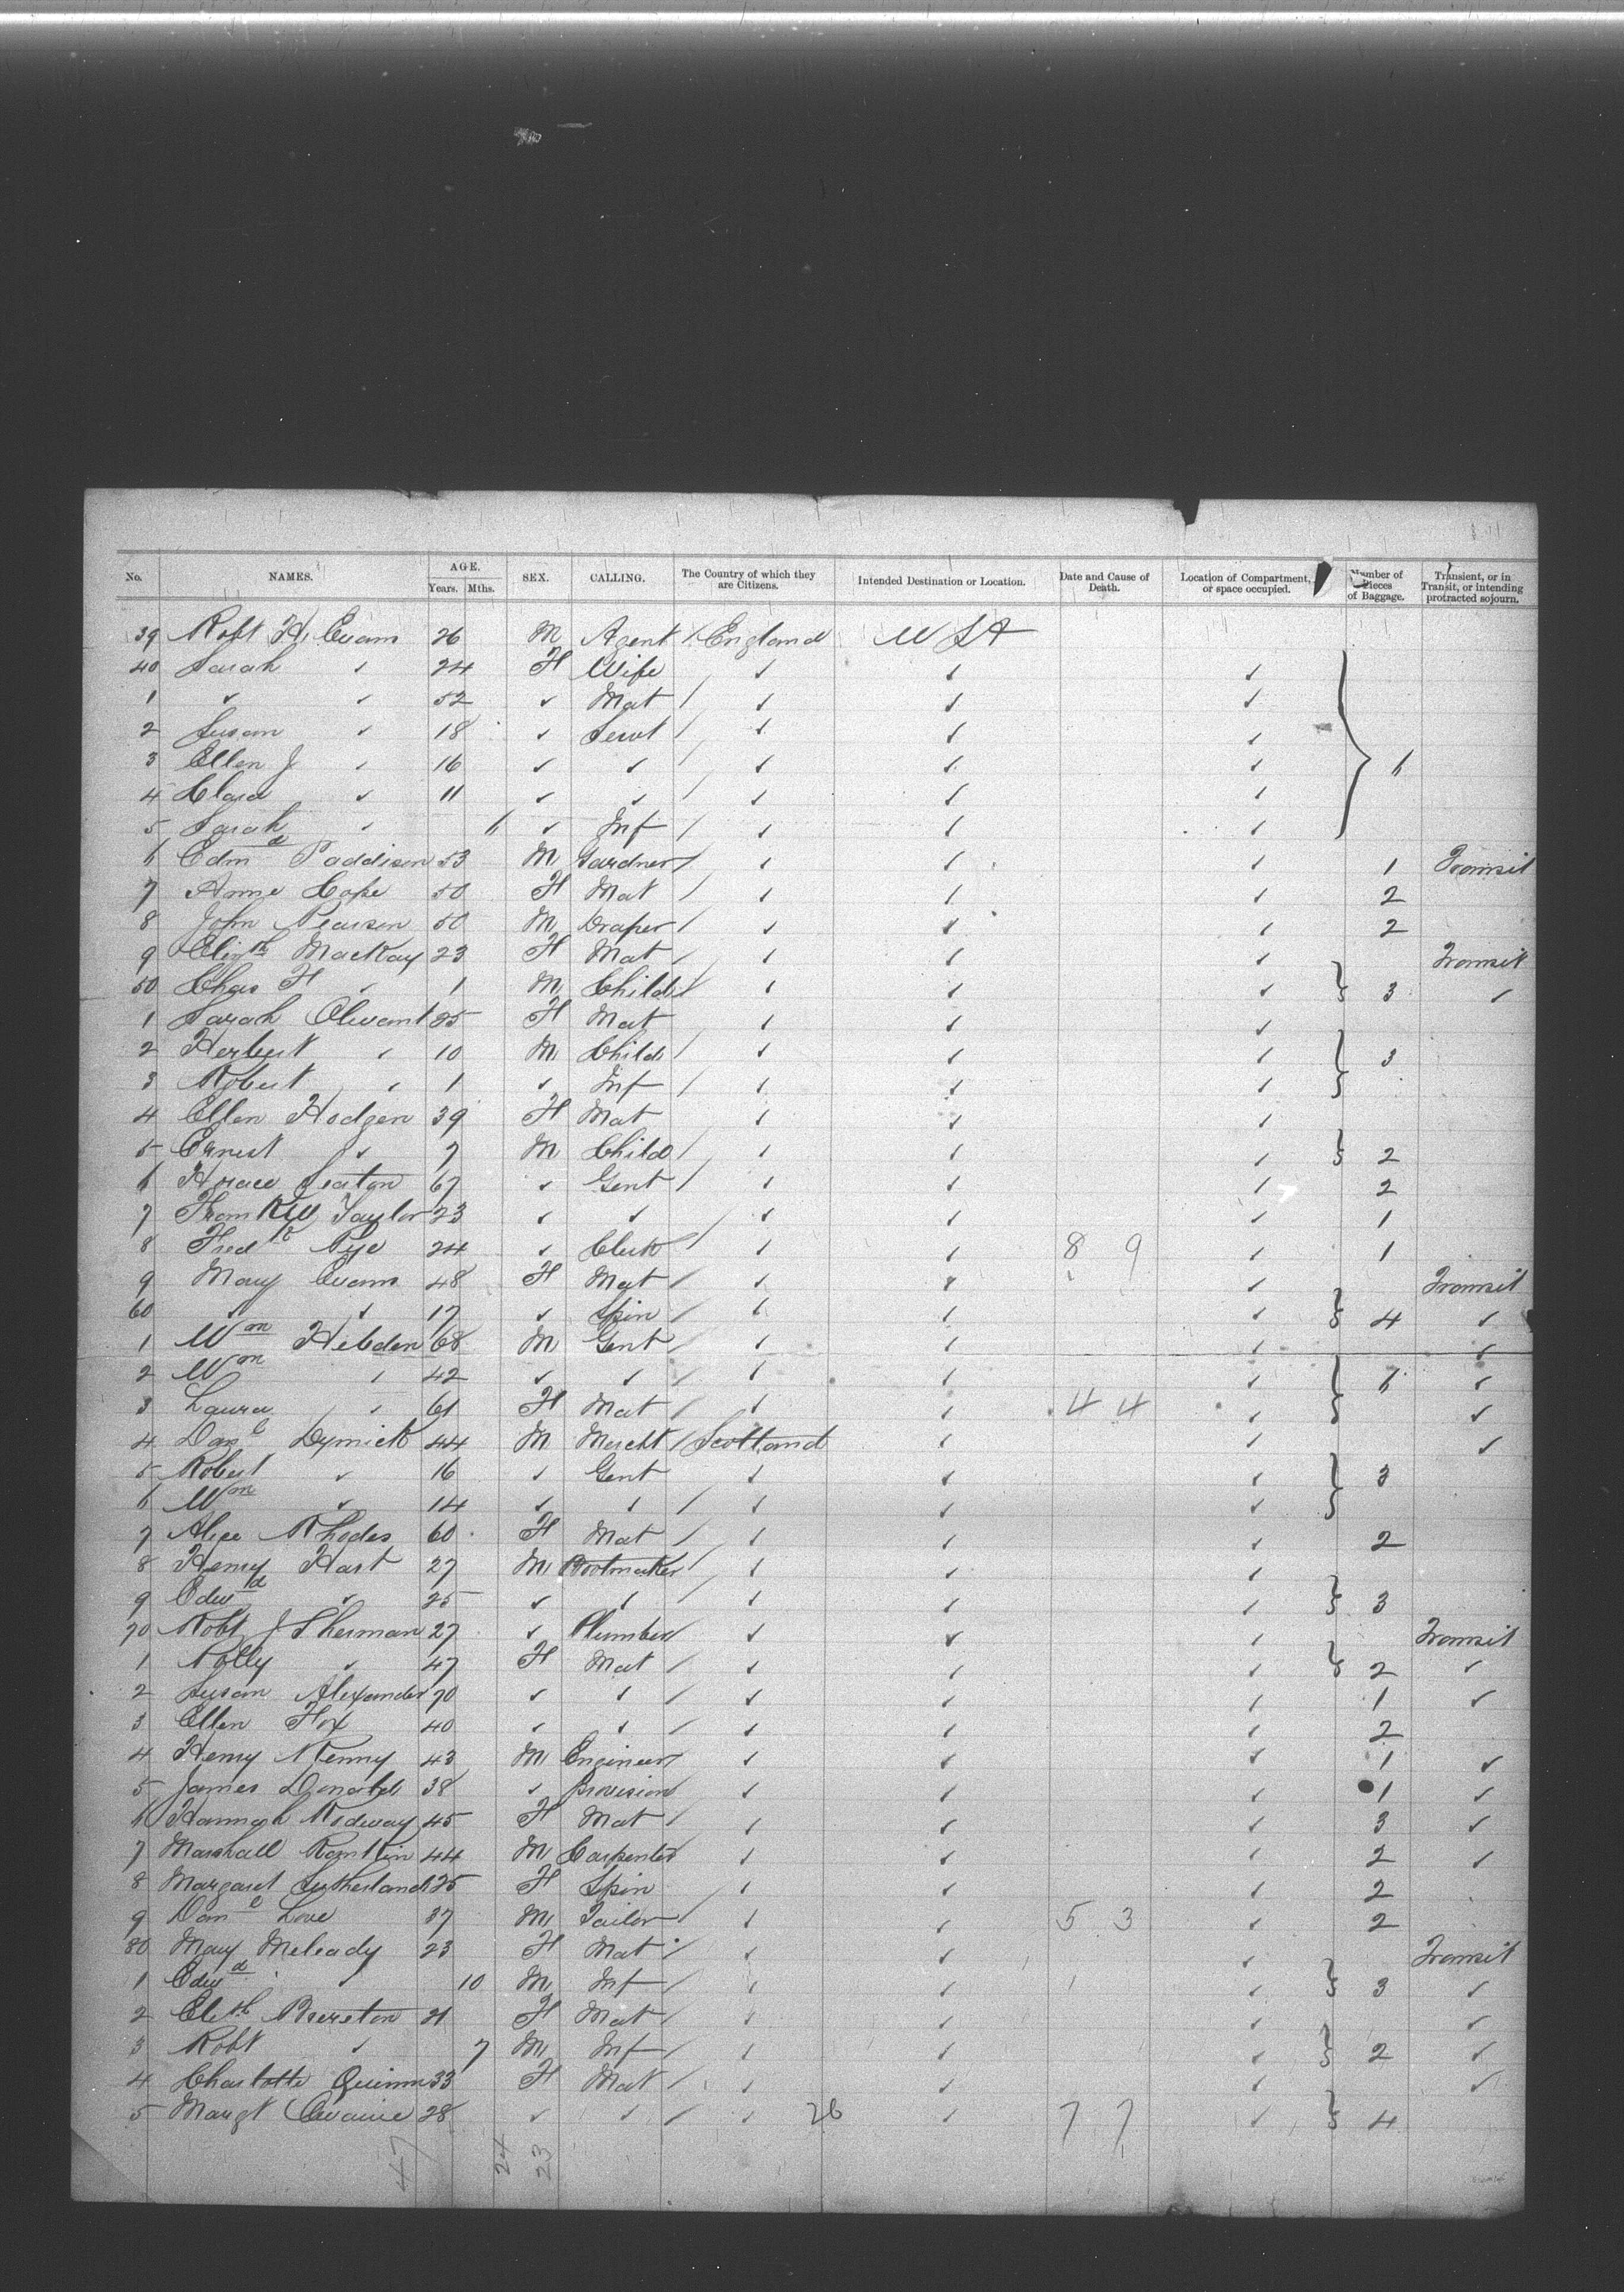 No. NAMES. AGE. Years. Mths. SEX. CALLING. The Country of which they are Citizens. Intended Destination or Location. Date and Cause of Death. Location of Compartment, or space occupied. Number of Pieces of Baggage. Transient, or in Transit, or intending protracted sojourn.
39 Robt H. Evans 26 M Agent / England USA
40 Sarah " 24 F Wife " " "
1 " " 52 " Mat / " " "
2 Susan " 18 " Servt / " " "
3 Ellen J " 16 " " / " " " 6
4 Clara " 11 " " / " " "
5 Sarah " 6 " Inf / " " "
6 Edmd Paddison 53 M Gardner / " " " 1 Transit
7 Anne Cope 50 F Mat / " " " 2
8 John Pearson 50 M Draper / " " " 2
9 Elizth MacKay 23 F Mat / " " " Transit
50 Chas F " 1 M Child / " " " 3 "
1 Sarah Olivant 35 F Mat " " "
2 Herbert " 10 M Child / " " " 3
3 Robert " 1 " Inf / " " "
4 Ellen Hodgen 39 F Mat " " "
5 Ernest " 7 M Child / " " " 2
6 Horace Seaton 67 " Gent / " " " 2
7 Frank W Taylor 23 " " / " " " 1
8 Fredk Pye 24 " Clerk / " " 8 9 " 1
9 Mary Evans 48 F Mat / " " " Transit
60 " " 17 " Spin / " " " 4 "
1 Wm Hebden 68 M Gent / " " " "
2 Wm " 42 " " / " " " 6 "
3 Laura " 61 F Mat / " " 4 4 " "
4 Danl Dymick 44 M Mercht / Scotland " " "
5 Robert " 16 " Gent " " " 3
6 Wm " 14 " " / " " "
7 Alice Rhodes 60 F Mat / " " " 2
8 Henry Hart 27 M Bootmaker / " " "
9 Edwd " 25 " " / " " " 3
70 Robt J Sherman 27 " Plumber / " " " Transit
1 Polly " 47 F Mat / " " " 2 "
2 Susan Alexander 70 " " / " " " 1 "
3 Ellen Fox 40 " " / " " " 2
4 Henry Kenny 43 M Engineer / " " " 1 "
5 James Donald 38 " Provision " " " 1 "
6 Hannah Rodway 45 F Mat / " " " 3 "
7 Marshall Rankin 44 M Carpenter " " " 2 "
8 Margaret Sutherland 25 F Spin " " " 2
9 Danl Love 37 M Tailor / " " 5 3 " 2
80 Mary Meleady 23 F Mat / " " " Transit
1 Edwd " 10 M Inf / " " " 3 "
2 Elizth Brereton 21 F Mat / " " " "
3 Robt " 7 M Inf / " " " 2 "
4 Charlotte Quinn 33 F Mat / " " " "
5 Margt 28 " " / " 26 " 7 7 " 4
47 24 23